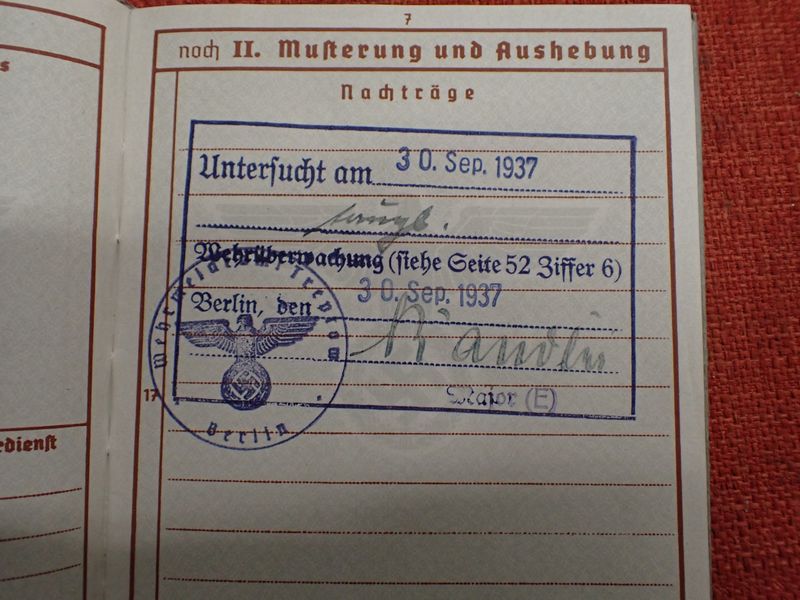 7
noch II. Musterung und Aushebung
Nachträge
Untersucht am 30. Sep. 1937
taugl.
Wehrüberwachung (siehe Seite 52 Ziffer 6)
Berlin, den 30. Sep. 1937
Major (E)
Berlin
17
s
rdienst